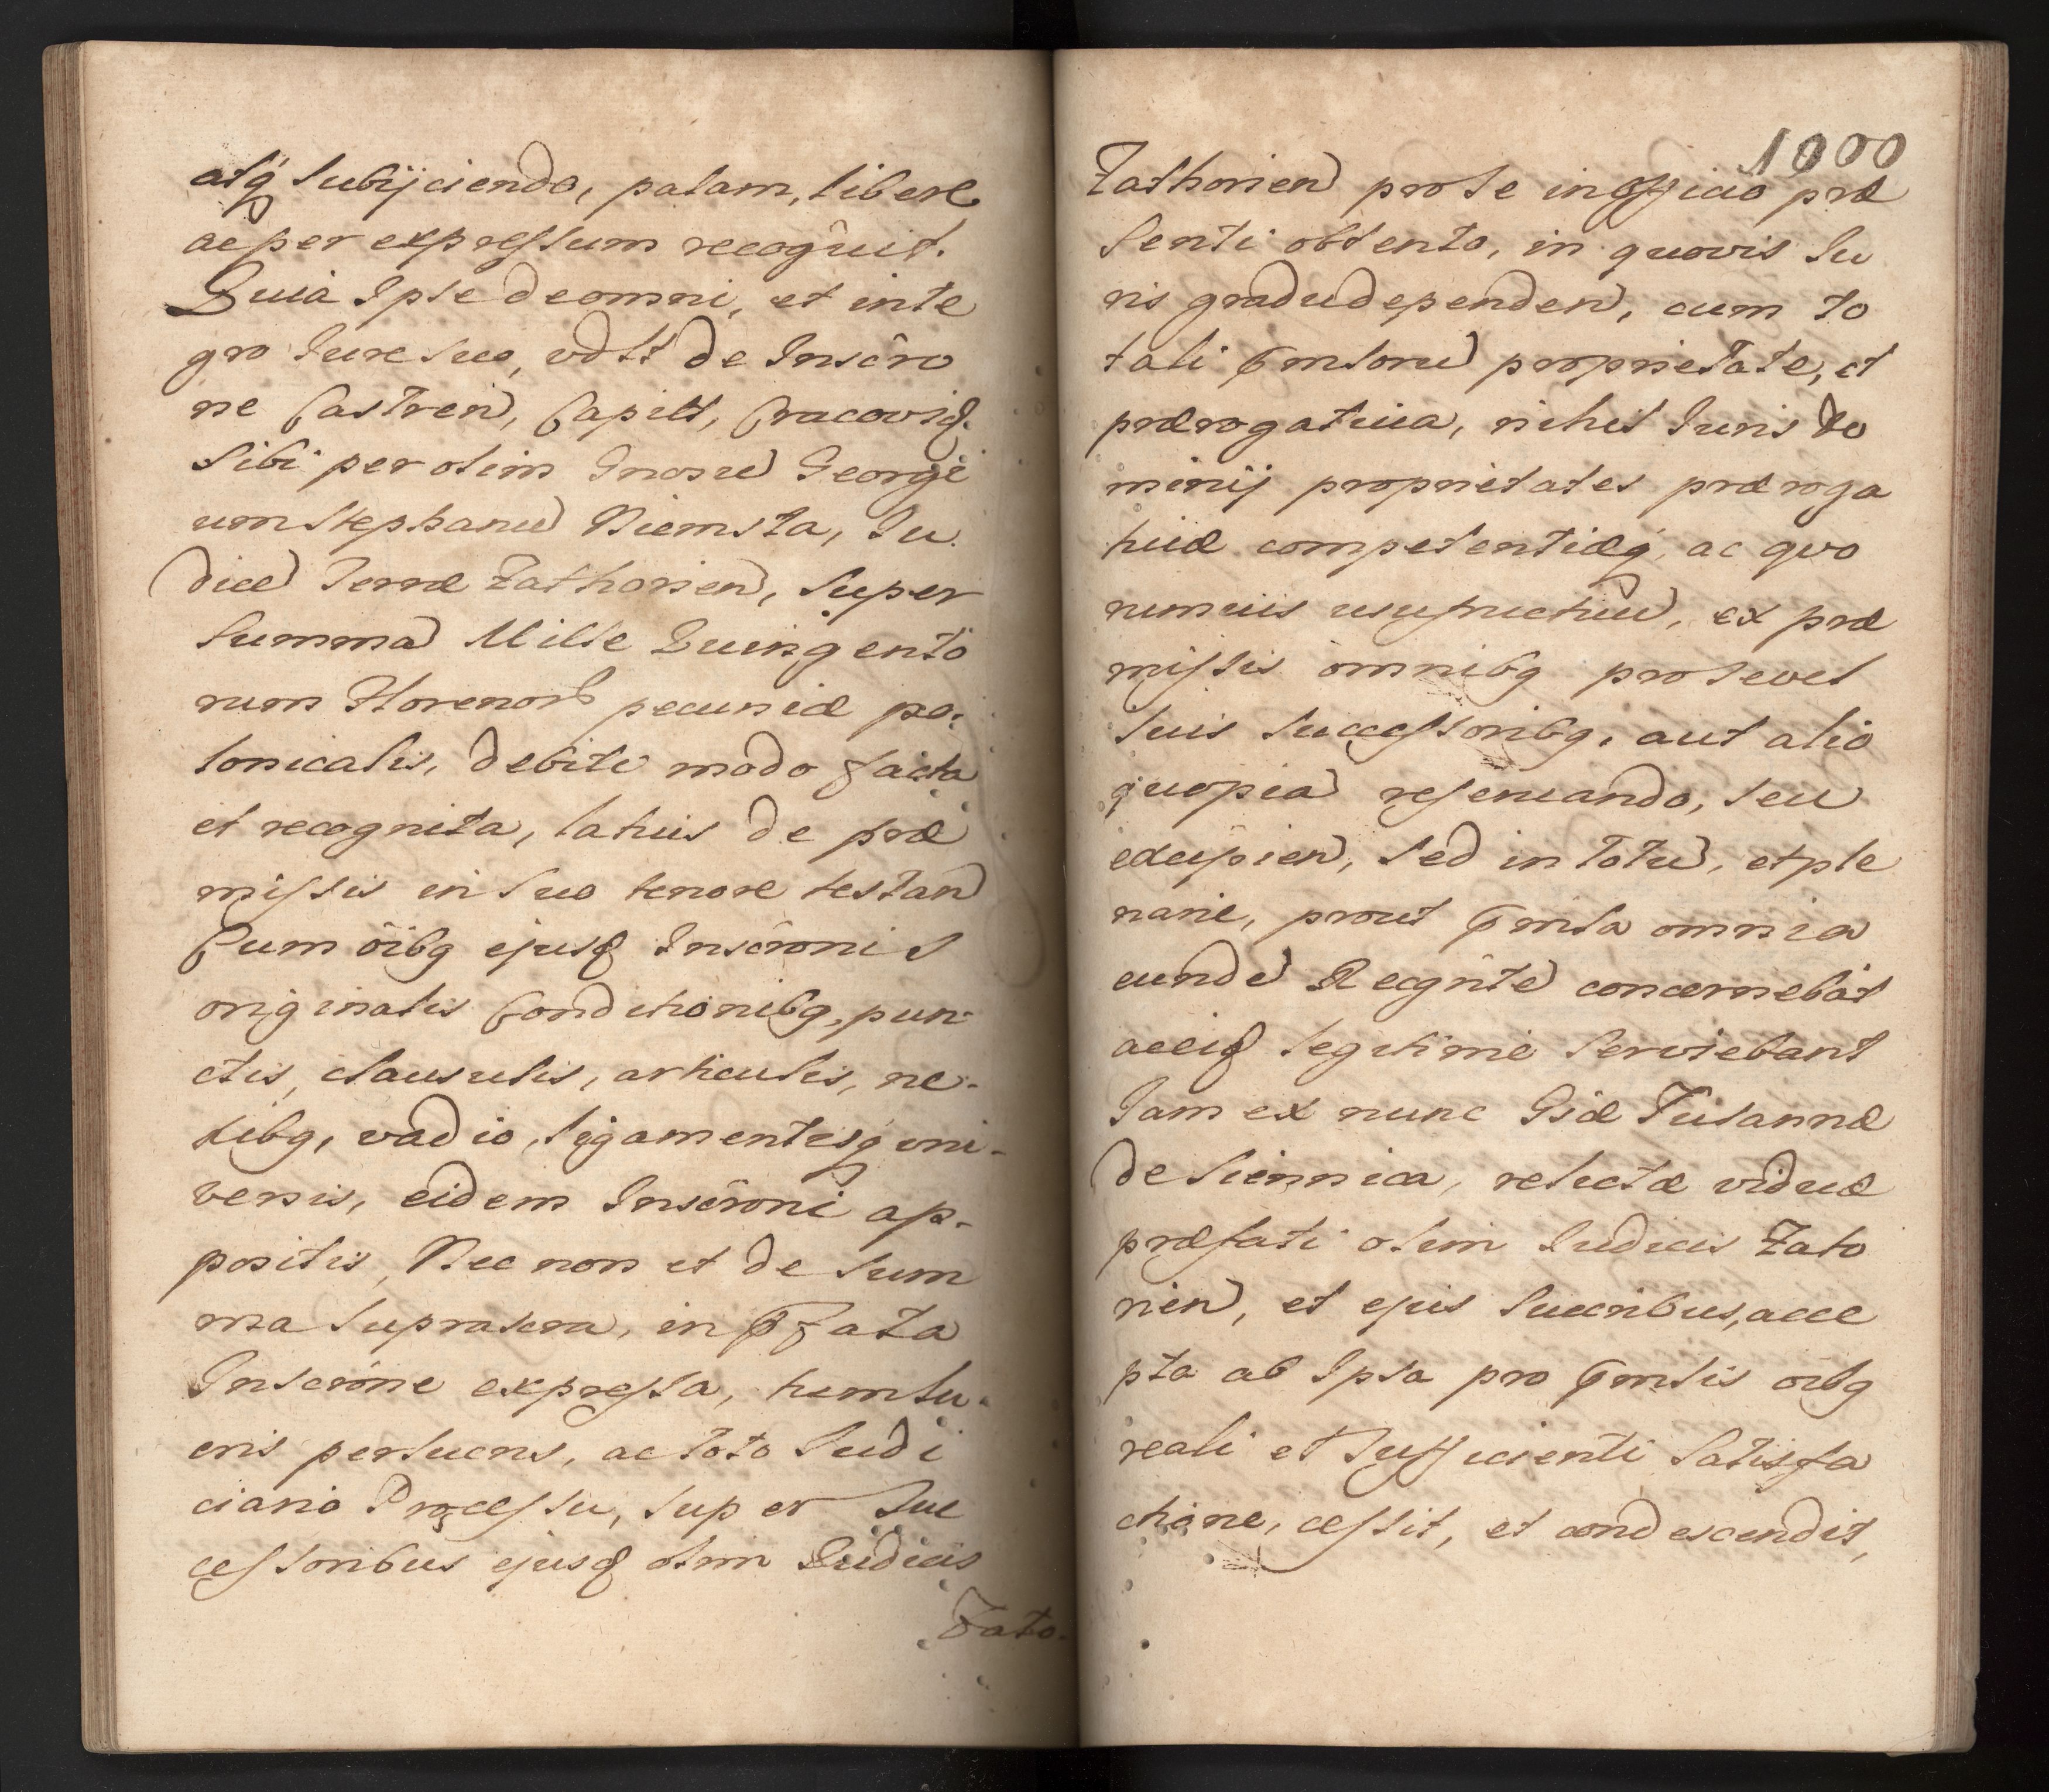 atq́ subijciendo, palam, libere
ac per expressum recogûit.
Quia Ipse de omni, et inte
gro Jure suo, vdltt de Inscro
ne Castren, Capitt, Cracovien.
Sibi per olim Gnosu Georgi
um Stephanu Niemsta, Ju
dice Terræ Zathorien, super
summa Mille Quingento
rum Florenor pecuniæ po:
lonicalis, debite modo facta
et recognita, latius de præ
missis in suo tenore testan
Cum oibg ejusd Inscroni s
originalis Conditionibg, pun
ctis, clausulis, articulis, ne-
xibg, vadio, ligamentisq uni-
versis, eidem Inscroni ap-
positis, Nec non et de sum
ma suprascra, in pfata
Inscrone expressa, tum lu-
cris perlucris, ac toto Judi
ciario Processu, super Suc
cessoribus ejusd olim Judicis
Zato-
1000
Zathorien pro se in officio præ
senti obtento, in quovis Ju
ris gradu dependen, cum to
tali pmsoru proprietate, et
prærogativa, nihil Juris do
minij proprietates præroga
tivæ competentiæq, ac quo
rumvis usufructuu, ex præ
missis omnibg pro se vel
suis successoribg, aut alio
quopia reservando, seu
excipien, sed in totu, et ple
narie, prout pmsa omnia
eunde Recgnte concernebat
ac eid legitime serviebant
Jam ex nunc Gsæ Zusannæ
de Siennica, relictæ viduæ
præfati olim Judicis Zato
rien, et ejus Succribus, acce
pta ab Ipsa pro pmsis oibg
reali et sufficienti satisfa
ctione, cessit, et condescendit,